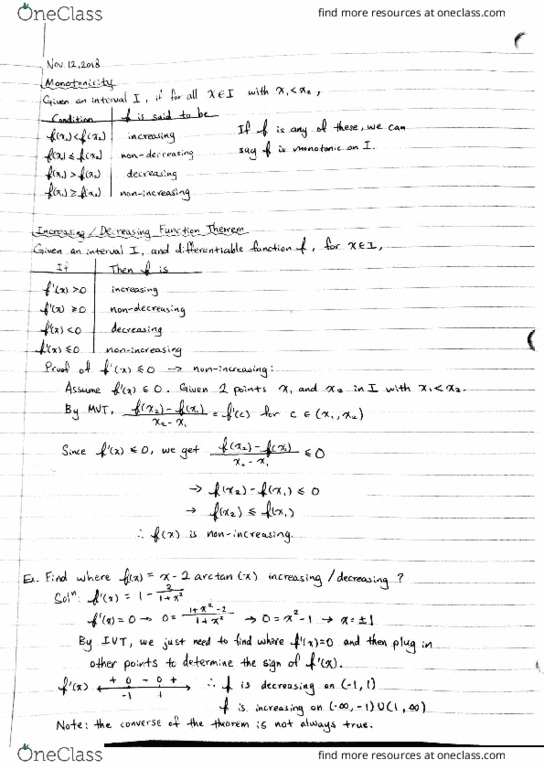 OneClass
find more resources at oneclass.com
Nov. 12, 2018
Monotonicity
Given an interval I, if for all x∈I with x₁<x₂,
Condition | f is said to be
f(x₁)<f(x₂) | increasing
f(x₁)≤f(x₂) | non-decreasing
f(x₁)>f(x₂) | decreasing
f(x₁)≥f(x₂) | non-increasing
If f is any of these, we can
say f is monotonic on I.
Increasing / Decreasing Function Theorem
Given an interval I, and differentiable function f, for x∈I,
If | Then f is
f'(x) >0 | increasing
f'(x) ≥0 | non-decreasing
f'(x) <0 | decreasing
f'(x) ≤0 | non-increasing
Proof of f'(x) ≤0 → non-increasing:
Assume f'(x) ≤ 0. Given 2 points x₁ and x₂ in I with x₁<x₂.
By MVT, (f(x₂)-f(x₁))/(x₂-x₁) = f'(c) for c ∈ (x₁, x₂)
Since f'(x) ≤ 0, we get (f(x₂)-f(x₁))/(x₂-x₁) ≤ 0
→ f(x₂)-f(x₁) ≤ 0
→ f(x₂) ≤ f(x₁)
∴ f(x) is non-increasing.
Ex. Find where f(x) = x-2 arctan(x) increasing / decreasing ?
Solⁿ: f'(x) = 1 - 2/(1+x²)
f'(x) = 0 → 0 = (1+x²-2)/(1+x²) → 0 = x²-1 → x = ±1
By IVT, we just need to find where f'(x)=0 and then plug in
other points to determine the sign of f'(x).
f'(x) + 0 - 0 + ∴ f is decreasing on (-1, 1)
-1 1 f is increasing on (-∞, -1)∪(1, ∞)
Note: the converse of the theorem is not always true.
OneClass
find more resources at oneclass.com